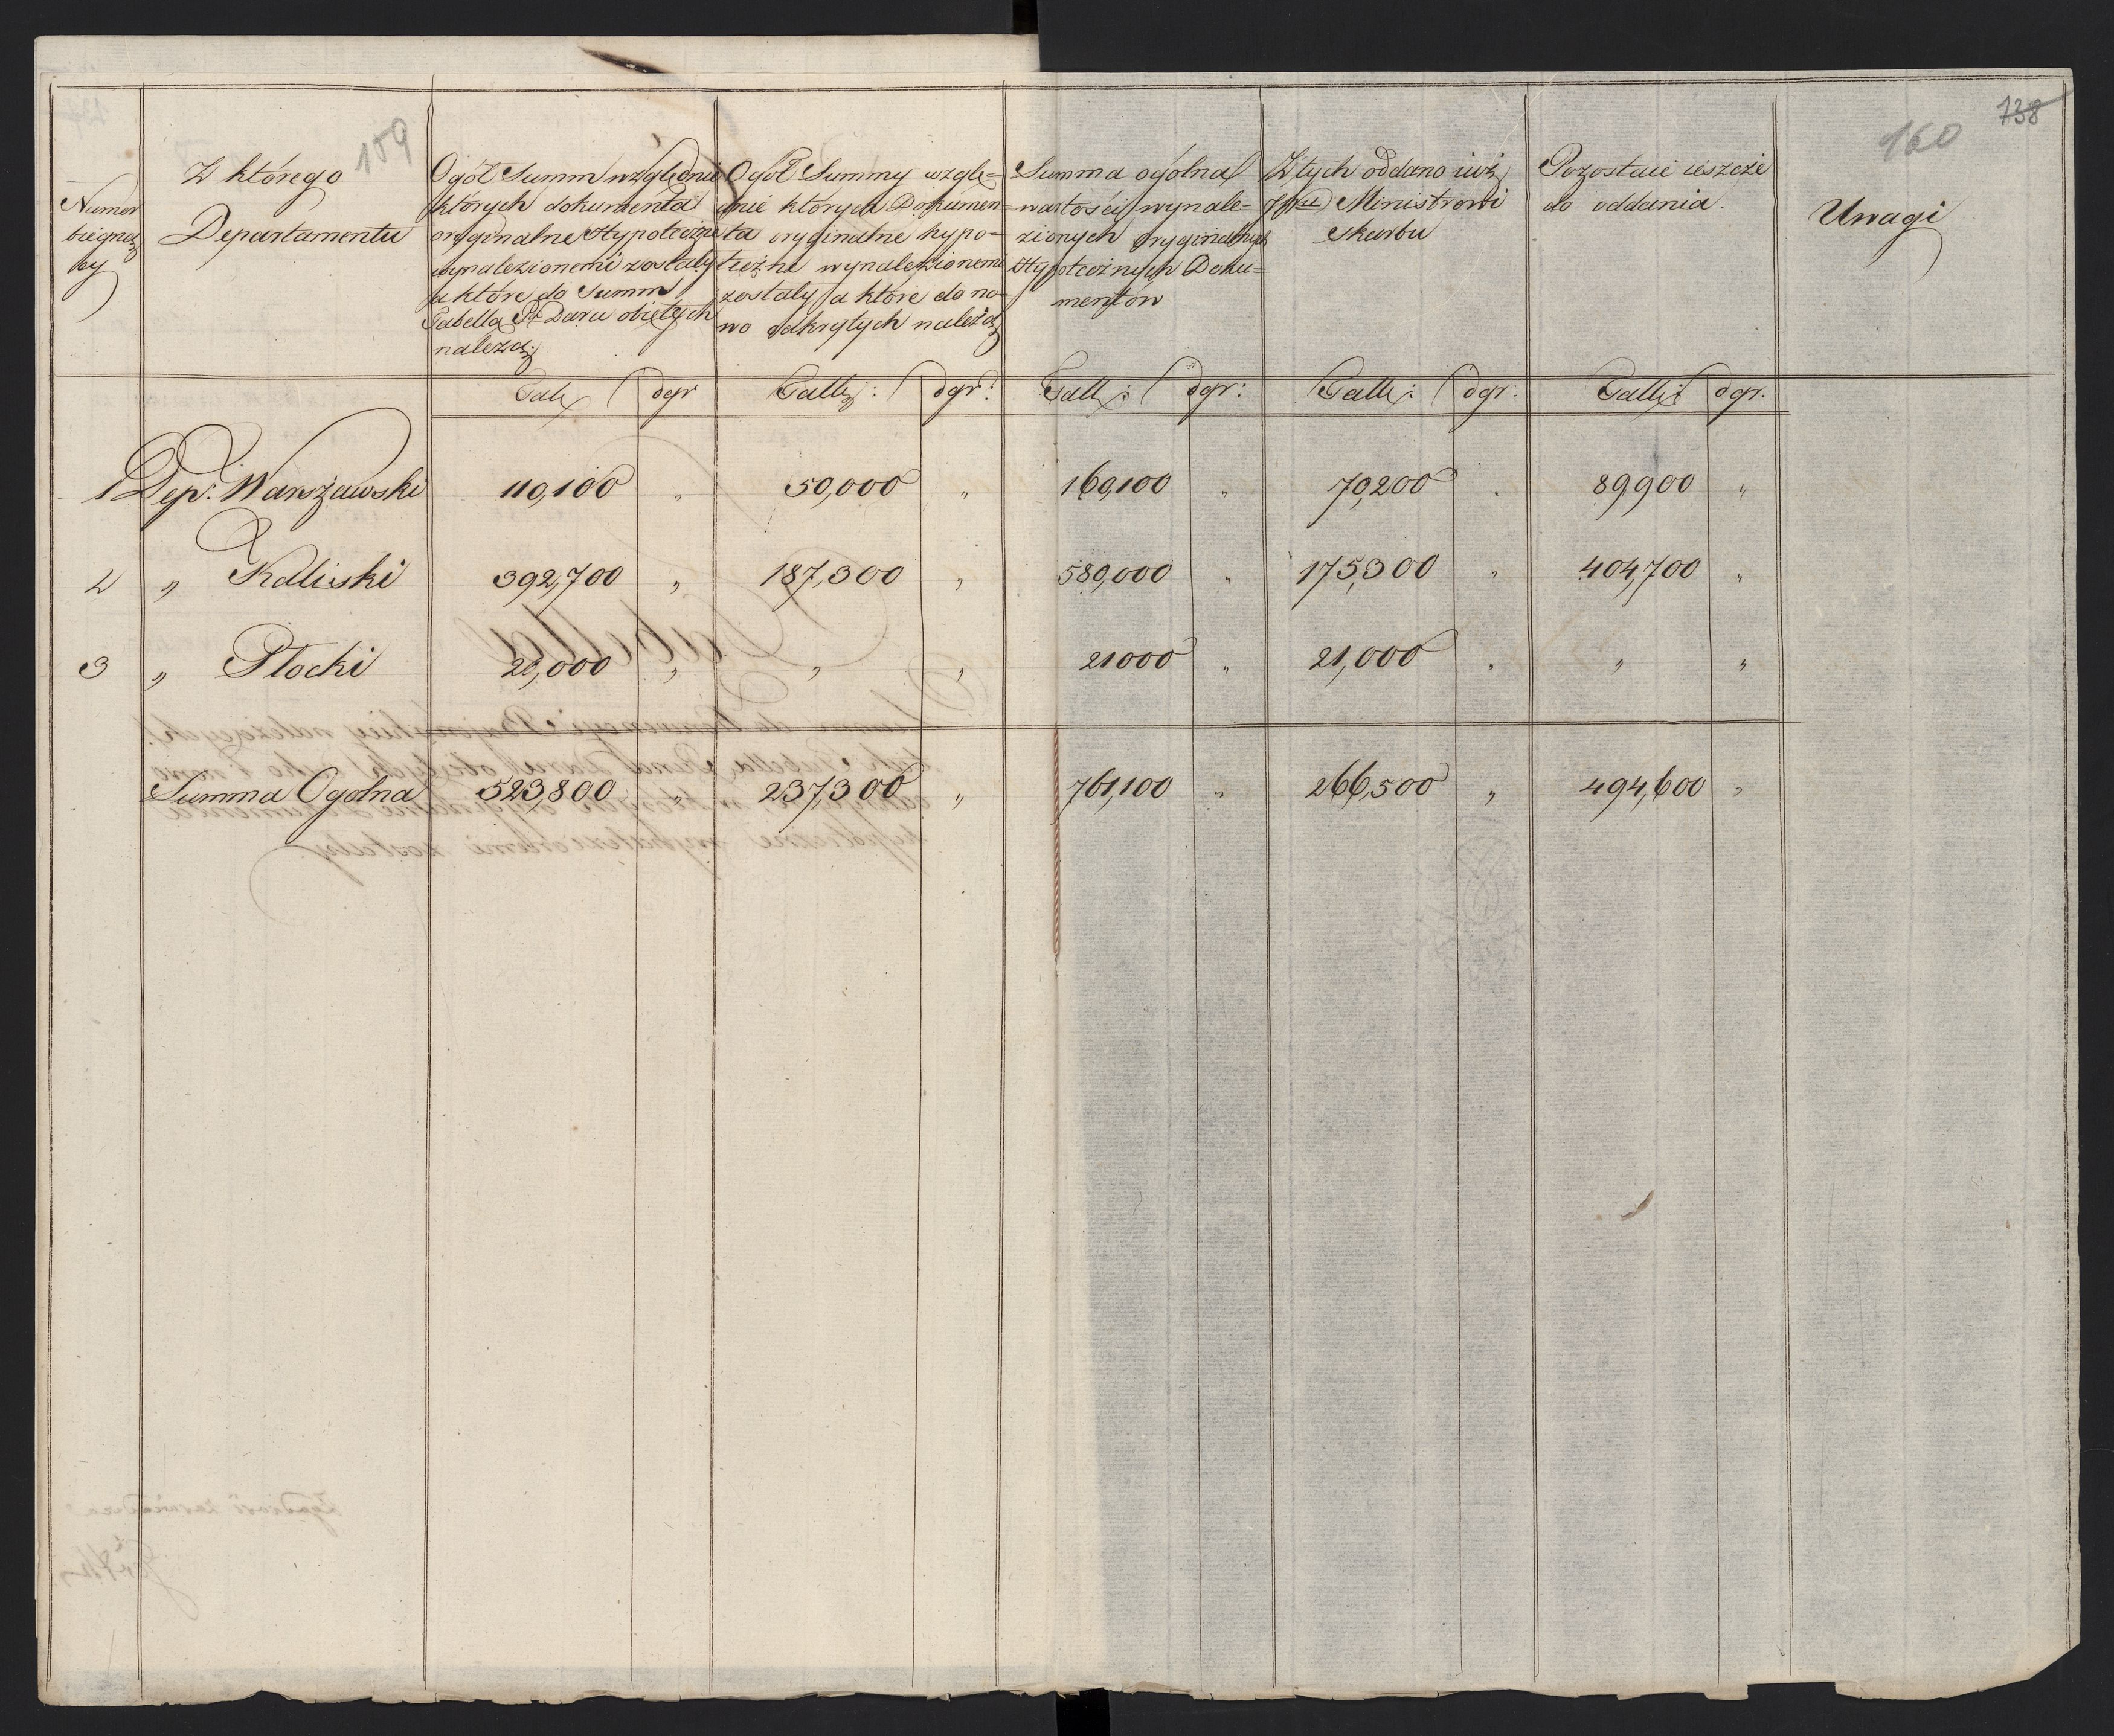 159
160
738
Numer
biegną
cy
Z którego
Departamentu
Ogół Summ względnie
których dokumenta
oryginalne Hypoteczne
wynalezionemi zostały
a które do Summ
Tabellą Pa Daru obiętych
należą:
Ogół Summy wzglę=
dnie których Dokumen=
ta oryginalne hypo=
teczne wynalezionemi
zostały a które do no=
wo odkrytych należą
Summa ogólna
wartości wynale=
zionych oryginalnych
Hypotecznych Doku=
mentów
Z tych oddano iuż
Ministrowi
Skarbu
Pozostaie ieszcze
do oddania.
Uwagi
Tal dgr Tall: dgr: Tall: dgr: Tall: dgr: Tall: dgr.
1 Dep: Warszawski 110,100 " 50,000 " 160,100 " 70,200 " 89,900 "
2 " Kaliski 392,700 " 187,300 " 580,000 " 175,300 " 404,700 "
3 " Płocki 21,000 " " " 21000 " 21,000 " " "
Summa Ogolna 523,800 " 237,300 " 761,100 " 266,500 " 494,600 "